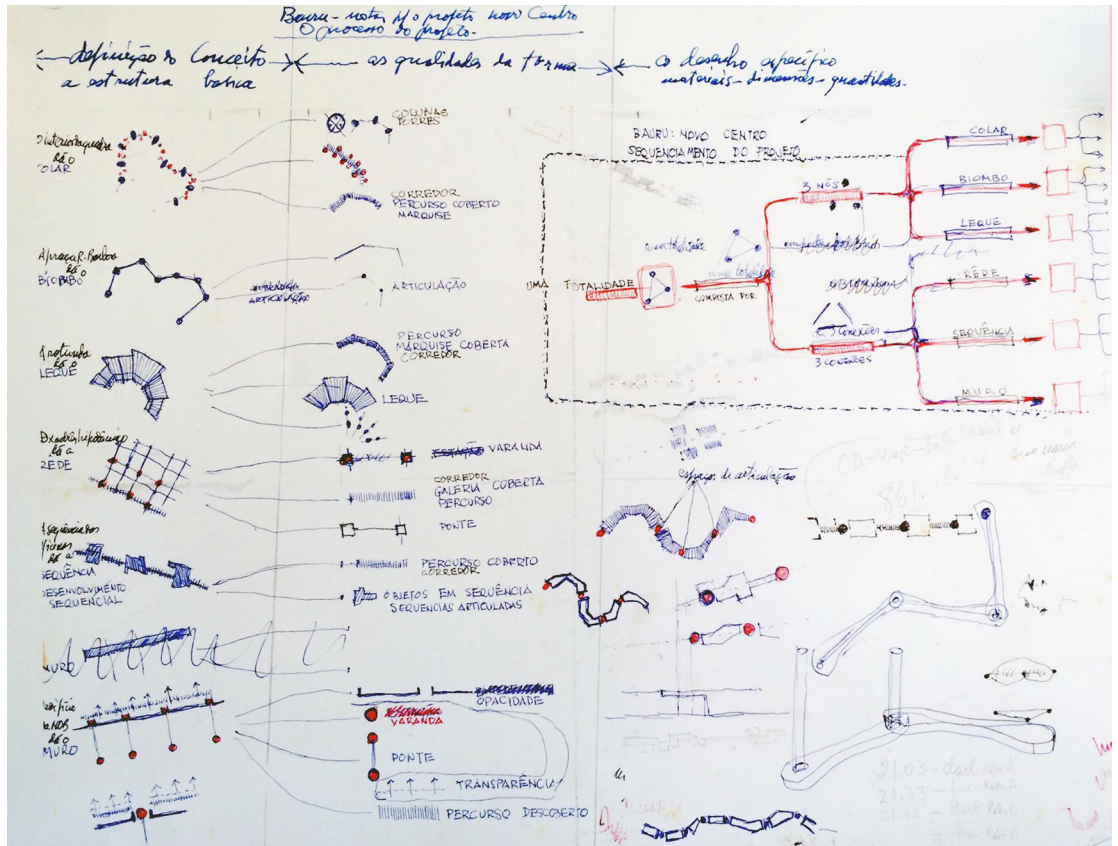 Bauru - notas p/ o projeto novo Centro
O processo do projeto.
definição do Conceito
a estrutura basica
as qualidades da forma
o desenho específico
materiais - dimensões - quantidades.
COLAR
COLUNAS
TORRES
CORREDOR
PERCURSO COBERTO
MARQUISE
A praça R. Barbosa
BIOMBO
ARTICULAÇÃO
ARTICULAÇÃO
A rotunda
LEQUE
PERCURSO
MARQUISE COBERTA
CORREDOR
LEQUE
REDE
ESTAÇÃO VARANDA
CORREDOR
GALERIA COBERTA
PERCURSO
PONTE
SEQUÊNCIA
DESENVOLVIMENTO
SEQUENCIAL
PERCURSO COBERTO
CORREDOR
OBJETOS EM SEQUÊNCIA
SEQUENCIAS ARTICULADAS
MURO
MURO
OPACIDADE
VARANDA
PONTE
TRANSPARÊNCIA
PERCURSO DESCOBERTO
BAURU: NOVO CENTRO
SEQUENCIAMENTO DO PROJETO
UMA
TOTALIDADE
COMPOSTA POR
3 NÓS
3 CONEXÕES
COLAR
BIOMBO
LEQUE
RÊDE
SEQUÊNCIA
MURO
espaços de articulação